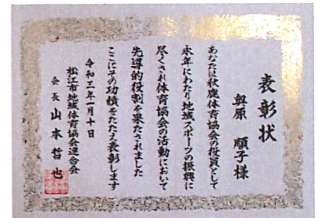 表彰状
奥原 順子様
あなたは秋鹿体育協会の役員として
永年にわたり地域スポーツの振興に
尽くされ体育協会の活動において
先導的役割を果たされました
ここにその功績をたたえ表彰します
令和三年一月十日
松江市地域体育協会連合会
会長 山本哲也